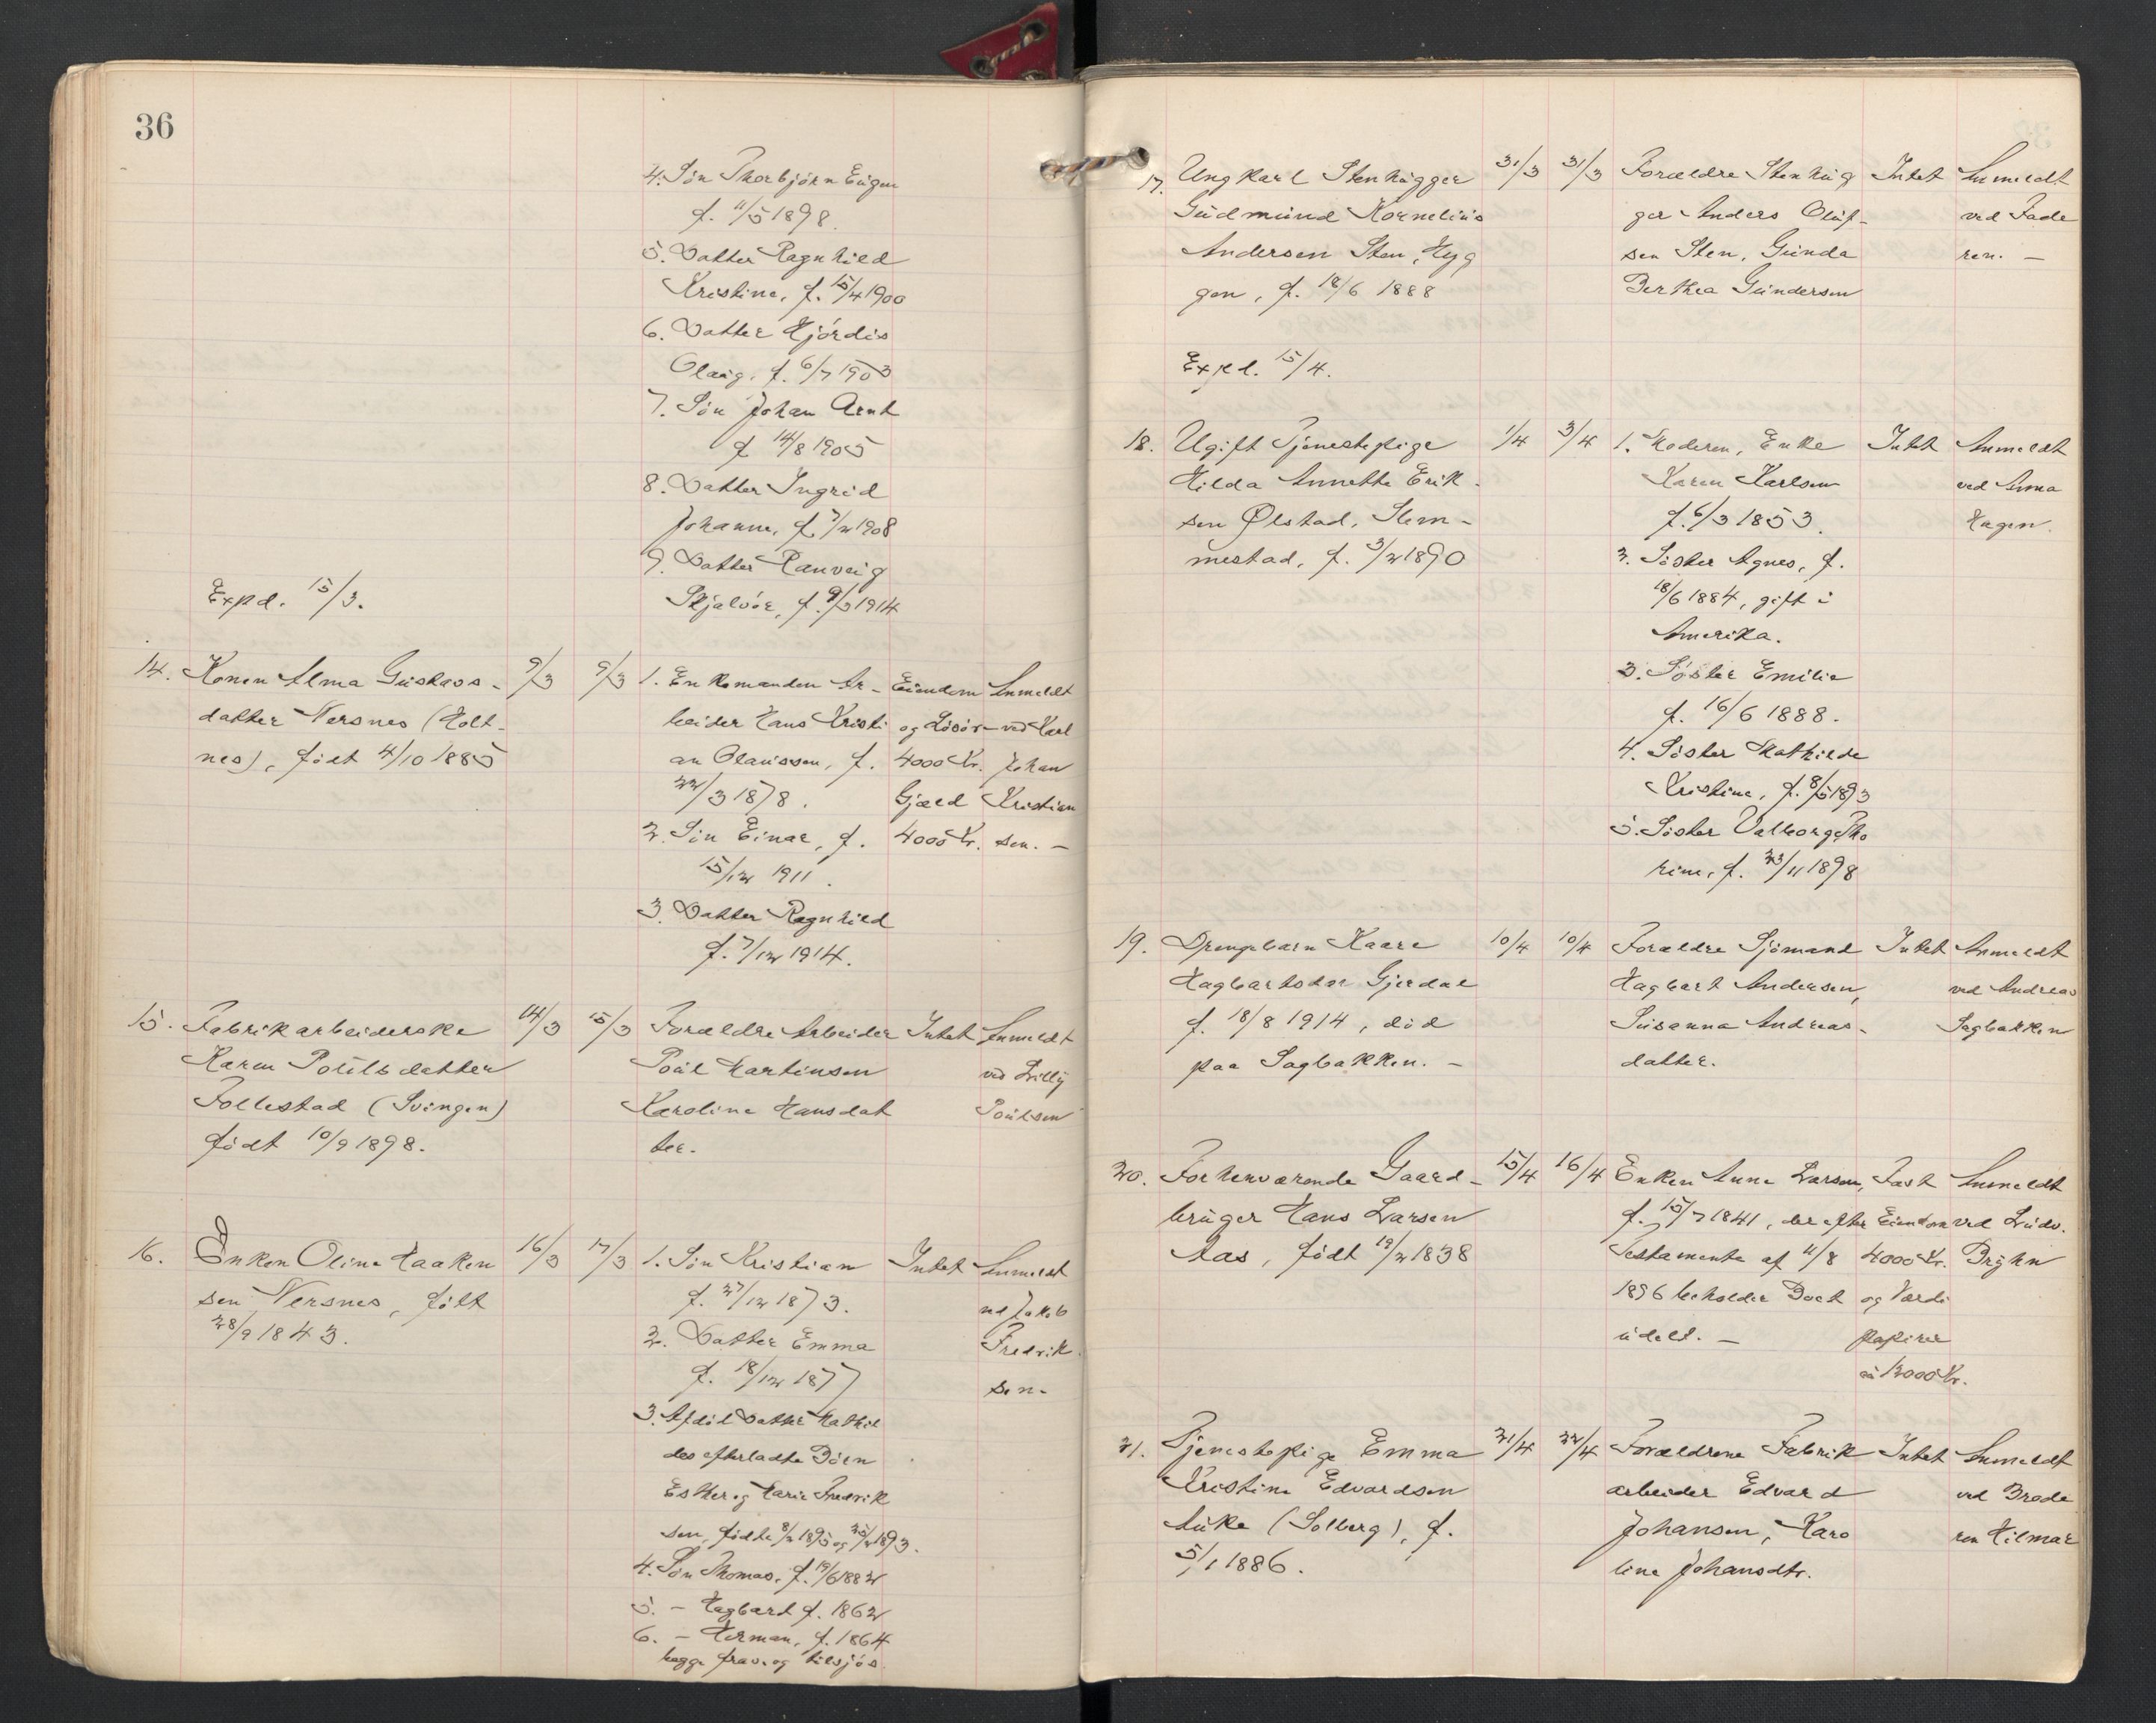 36
4. Søn Thorbjørn Eugen
f. 11/5 1898.
5. Datter Ragnhild
Kristine, f. 15/4 1900
6. Datter Hjørdis
Olaug, f. 6/7 1903
7. Søn Johan Arnt
f 14/8 1905
8. Datter Ingrid
Johanne, f. 7/2 1908
9. Datter Ranveig
Skjalvör, f. 9/3 1914
Expd. 15/3.
14. Konen Alma Gustavs- 9/3 9/3 1. Enkemanden Ar- Eiendom Anmeldt
datter Nersnes (Holt- beider Hans Kristi og Løsøre ved Karl
nes), født 4/10 1885 an Olaussen, f. 4000 Kr. Johan
22/3 1878. Gjæld Kristian
2. Søn Einar, f. 4000 Kr. sen. -
15/12 1911.
3. Datter Ragnhild
f. 7/12 1914.
15. Fabrikarbeiderske 14/3 15/3 Forældre Arbeider Intet Anmeldt
Karen Poulsdatter Poul Martinsen ved Lilly
Follestad (Svingen) Karoline Hansdat Poulsen
født 10/9 1898. ter.
16. Enken Oline Haaken 16/3 17/3 1. Søn Kristian Intet Anmeldt
sen Nersnes, født f. 27/12 1873. ved Jakob
28/9 1843. 2. Datter Emma Fredrik
f. 18/12 1877 sen.
3. Afdød Datter Mathil
des efterladte Børn
Esther og Marie Fredrik
sen, fødte 8/2 1895 og 25/2 1893.
4. Søn Thomas, f. 19/6 1882
5. - Hagbard f. 1862
6. - Herman, f. 1864
begge frav. og tilsjøs.
17. Ungkarl Stenhugger 31/3 31/3 Forældre Stenhug Intet Anmeldt
Gudmund Kornelius ger Anders Oluf- ved Fade
Andersen Sten, Hyg sen Sten, Gunda ren. -
gen, f. 18/6 1888 Berthea Gundersen
Exped. 15/4.
18. Ugift Tjenestepige 1/4 3/4 1. Moderen, Enke Intet Anmeldt
Hilda Annette Erik- Karen Karlsen ved Anna
sen Ølstad, Slem- f. 6/3 1853. Hagen.
mestad, f. 3/2 1890 2. Søster Agnes, f.
18/6 1884, gift i
Amerika.
3. Søster Emilie
f. 16/6 1888.
4. Søster Mathilde
Kristine, f. 8/5 1893
5. Søster Valborg Tho
rine, f. 23/11 1898
19. Drengebarn Kaare 10/4 10/4 Forældre Sjømand Intet Anmeldt
Hagbartsøn Gjerdal Hagbart Andersen, ved Andreas
f. 18/8 1914, død Susanna Andreas- Sagbakken
paa Sagbakken. - datter.
20. Forhenværende Gaard- 15/4 16/4 Enken Anne Larsen, Fast Anmeldt
bruger Hans Larsen f. 15/7 1841, der efter Eiendom ved Ludv.
Aas, født 19/2 1838 Testamente af 11/8 4000 Kr. Brÿhn
1896 beholder Boet og Værdi
udelt. - papirer
12000 Kr.
21. Tjenestepige Emma 21/4 22/4 Forældrene Fabrik Intet Anmeldt
Kristine Edvardsen arbeider Edvard ved Brode
Auke (Solberg), f. Johansen, Karo ren Hilmar
5/1 1886. line Johansdtr.